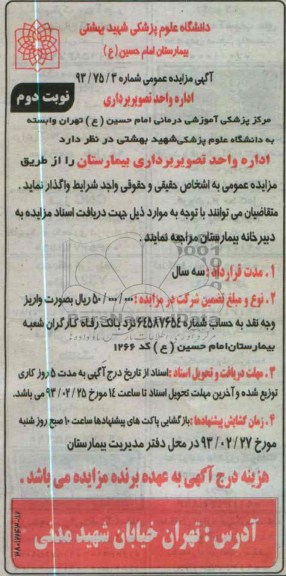 دانشگاه علوم پزشکی شهید بهشتی
بیمارستان امام حسین (ع)
آگهی مزایده عمومی شماره ۹۳/۷۵/۳
نوبت دوم
اداره واحد تصویربرداری
مرکز پزشکی آموزشی درمانی امام حسین (ع) تهران وابسته
به دانشگاه علوم پزشکی شهید بهشتی در نظر دارد
اداره واحد تصویربرداری بیمارستان را از طریق
مزایده عمومی به اشخاص حقیقی و حقوقی واجد شرایط واگذار نماید .
متقاضیان می توانند با توجه به موارد ذیل جهت دریافت اسناد مزایده به
دبیرخانه بیمارستان مراجعه نمایند .
۱. مدت قرارداد : سه سال
۲. نوع و مبلغ تضمین شرکت در مزایده : ۵۰/۰۰۰/۰۰۰ ریال بصورت واریز
وجه نقد به حساب شماره ۶۴۵۸۷۶۵۴ نزد بانک رفاه کارگران شعبه
بیمارستان امام حسین (ع) کد ۱۲۶۶
۳. مهلت دریافت و تحویل اسناد : اسناد از تاریخ درج آگهی به مدت ۵ روز کاری
توزیع شده و آخرین مهلت تحویل اسناد تا ساعت ۱۴ مورخ ۹۳/۰۲/۲۵ می باشد.
۴. زمان گشایش پیشنهادها : بازگشایی پاکت های پیشنهادها ساعت ۱۰ صبح روز شنبه
مورخ ۹۳/۰۲/۲۷ در محل دفتر مدیریت بیمارستان
هزینه درج آگهی به عهده برنده مزایده می باشد .
آدرس : تهران خیابان شهید مدنی